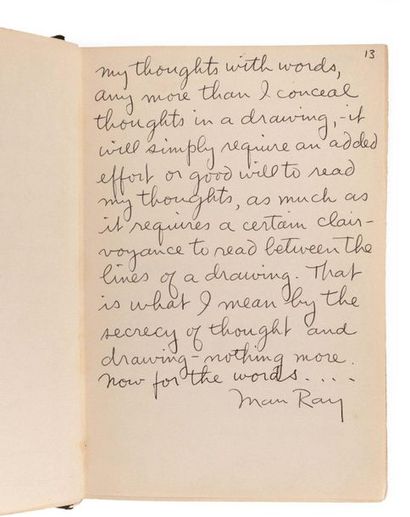 13
my thoughts with words,
any more than I conceal
thoughts in a drawing,-it
will simply require an added
effort or good will to read
my thoughts, as much as
it requires a certain clair-
voyance to read between the
lines of a drawing. That
is what I mean by the
secrecy of thought and
drawing-nothing more.
Now for the words....
Man Ray